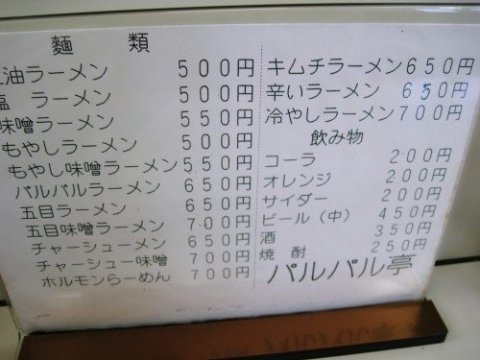 麺 類
油ラーメン 500円
塩 ラーメン 500円
味噌ラーメン 550円
もやしラーメン 500円
もやし味噌ラーメン 550円
パルパルラーメン 650円
五目ラーメン 650円
五目味噌ラーメン 700円
チャーシューメン 650円
チャーシュー味噌 700円
ホルモンらーめん 700円
キムチラーメン 650円
辛いラーメン 650円
冷やしラーメン 700円
飲み物
コーラ 200円
オレンジ 200円
サイダー 200円
ビール(中) 450円
酒 350円
焼 酎 250円
パルパル亭